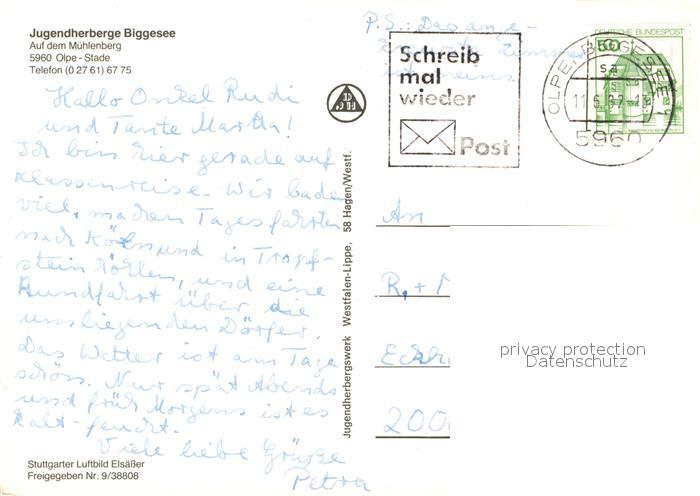 Jugendherberge Biggesee
Auf dem Mühlenberg
5960 Olpe - Stade
Telefon (0 27 61) 67 75
Hallo Onkel Rudi
und Tante Martha!
Ich bin hier gerade auf
Klassenreise. Wir baden
viel, machen Tagesfahrten
nach Köln und in Tropf-
steinhöhlen, und eine
Rundfahrt über die
umsliegenden Dörfer.
Das Wetter ist am Tage
schön. Nur spät Abends
und früh Morgens ist es
kalt-feucht.
Viele liebe Grüße
Petra
Stuttgarter Luftbild Elsäßer
Freigegeben Nr. 9/38808
Jugendherbergswerk Westfalen-Lippe, 58 Hagen/Westf.
P.S.: Das ange-
Zimmer
ist meins.
Schreib
mal
wieder
Post
DEUTSCHE BUNDESPOST
50
OLPE, BIGGESEE 1
sa
5960
An
R. +
Eckh
200
privacy protection
Datenschutz